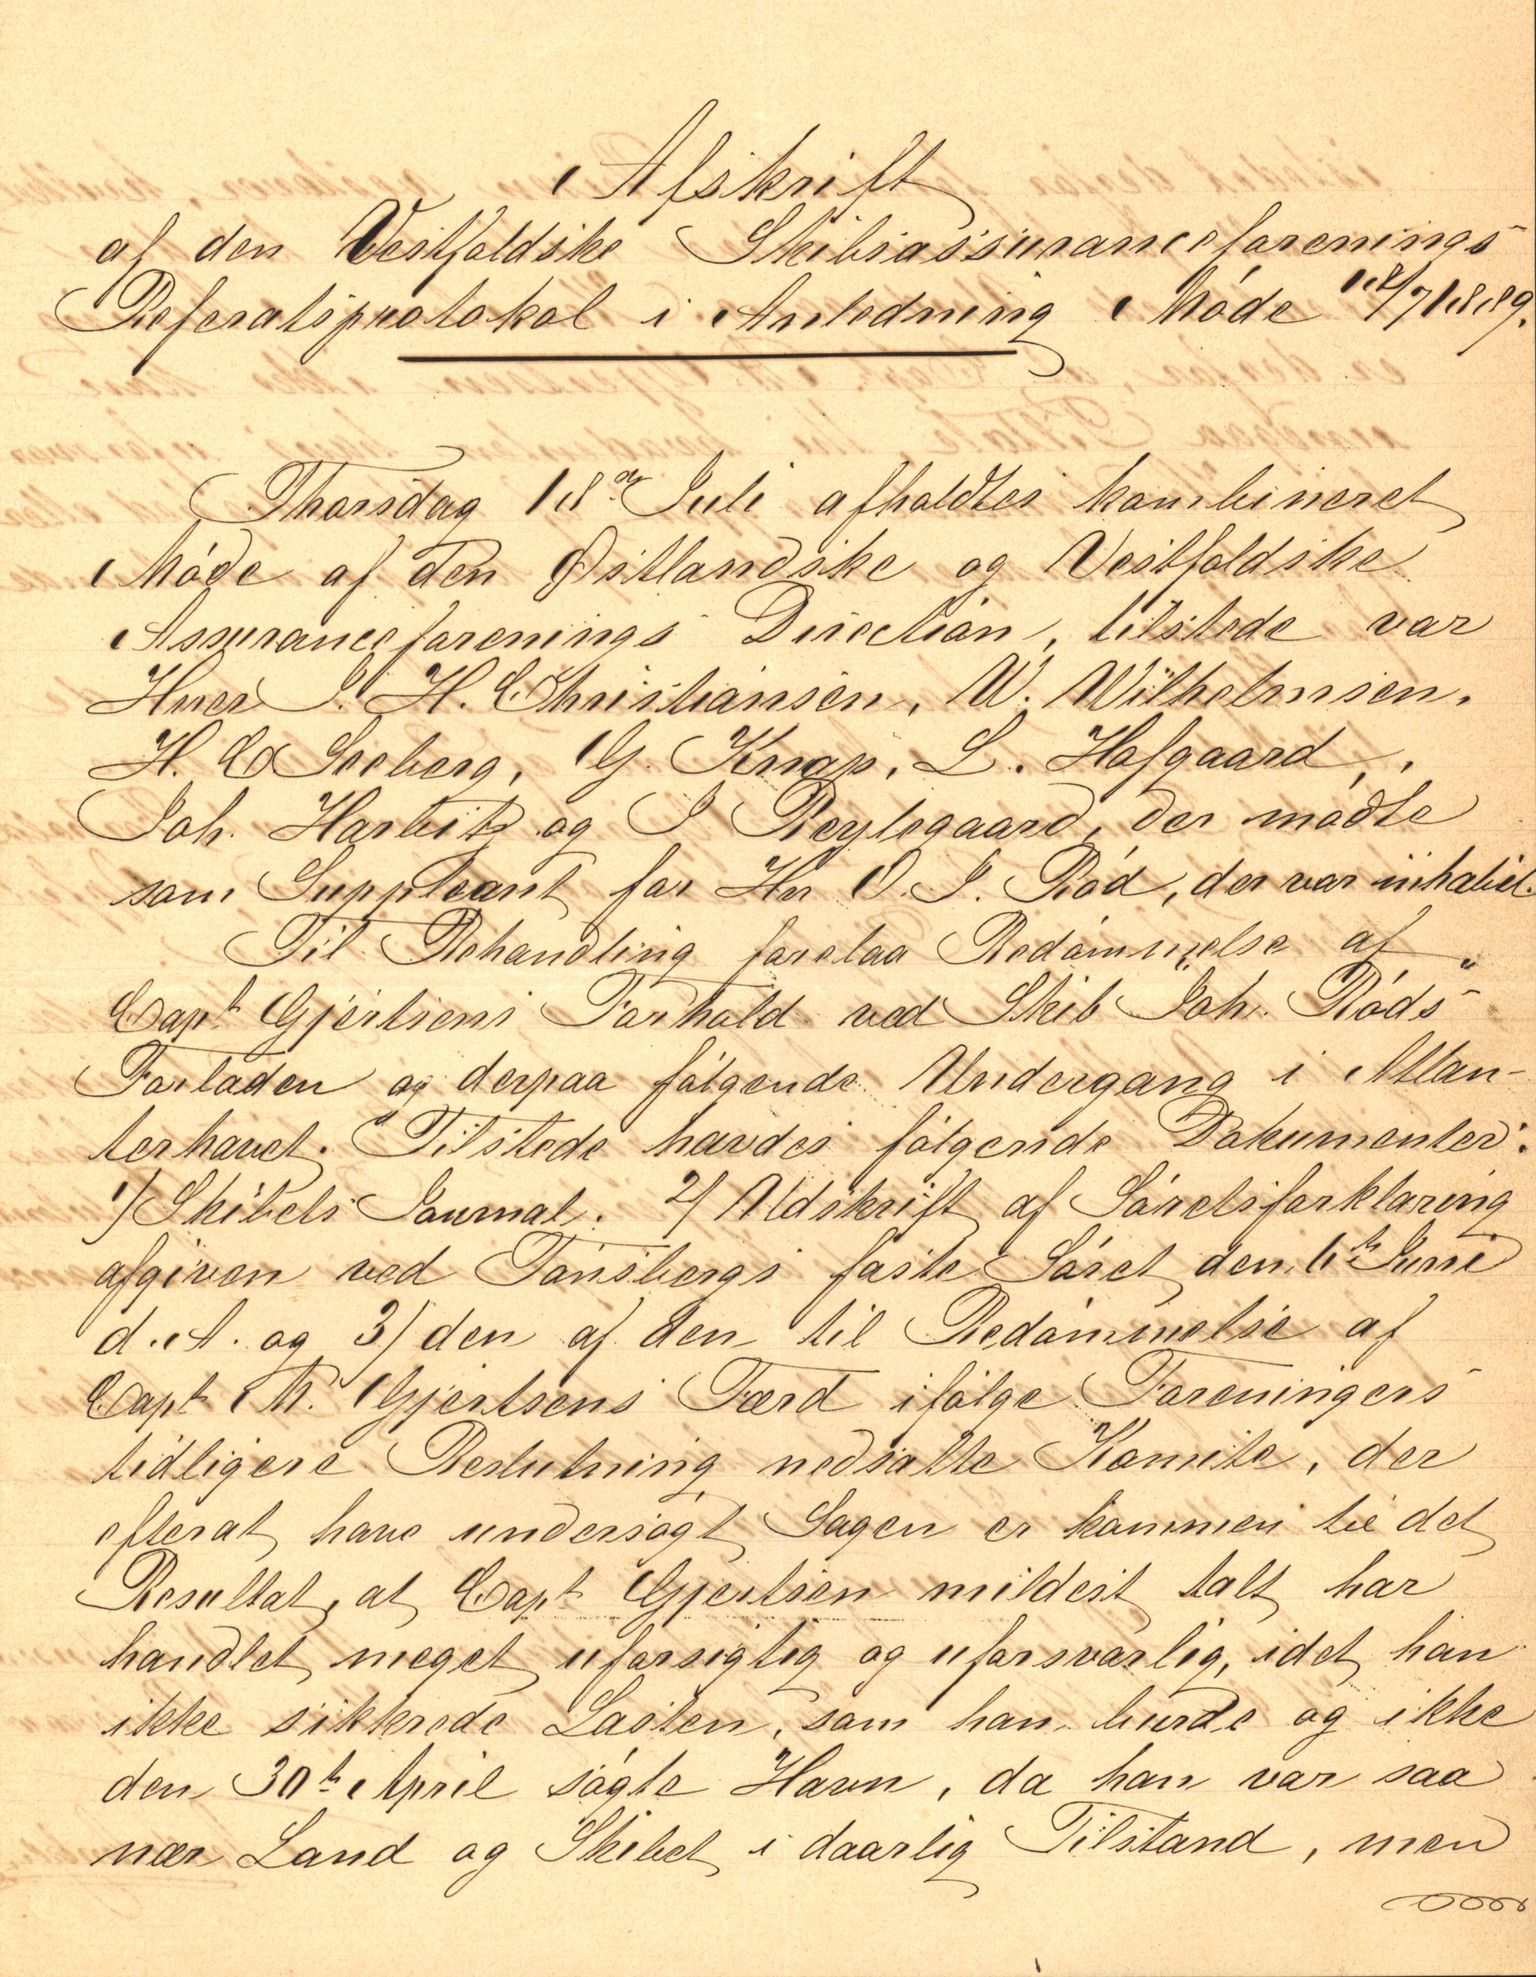 Afskrift
af den Vestfoldske Skibsassuranceforenings
Referatsprotokol i Anledning Møde 18/7 1889.
Thorsdag 18de Juli afholdtes kombineret
Møde af den Østlandske og Vestfoldske
Assuranceforenings Direction, tilstede var
Hrer J. H. Christiansen, W. Wilhelmsen.
H. E Seeberg, G. Knap, L. Hofgaard,
Joh. Harbitz og J Reylegaard, der mødte
som Suppleant for Hr O. J. Rød, der var inhabil.
Til Behandling forelaa Bedømmelse af
Capt Gjertsens Forhold ved Skib "Joh. Røds"
Forladen og derpaa følgende Undergang i Atlan-
terhavet. Tilstede havdes følgende Dokumenter:
1) Skibets Journal. 2) Udskrift af Søretsforklaring
afgiven ved Tønsbergs faste Søret den 6te Juni
d. A. og 3) den af den til Bedømmelse af
Capt M. Gjertsens Færd ifølge Foreningers
tidligere Beslutning nedsatte Komite, der
efterat have undersøgt Sagen er kommen til det
Resultat, at Capt Gjertsen mildest talt har
handlet meget uforsigtig og uforsvarlig, idet han
ikke sikkrede Lasten, som han burde og ikke
den 30te April søgte Havn, da han var saa
nær Land og Skibet i daarlig Tilstand, men